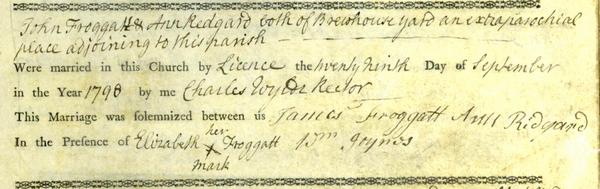 John Froggatt & Ann Redgard both of Brewhouse yard an extraparochial
place adjoining to this parish
Were married in this Church by Licence the twenty Ninth Day of September
in the Year 1798 by me Charles Wylde Rector
This Marriage was solemnized between us James Froggatt Ann Ridgard
In the Presence of Elizabeth her X mark Froggatt Wm Joynes